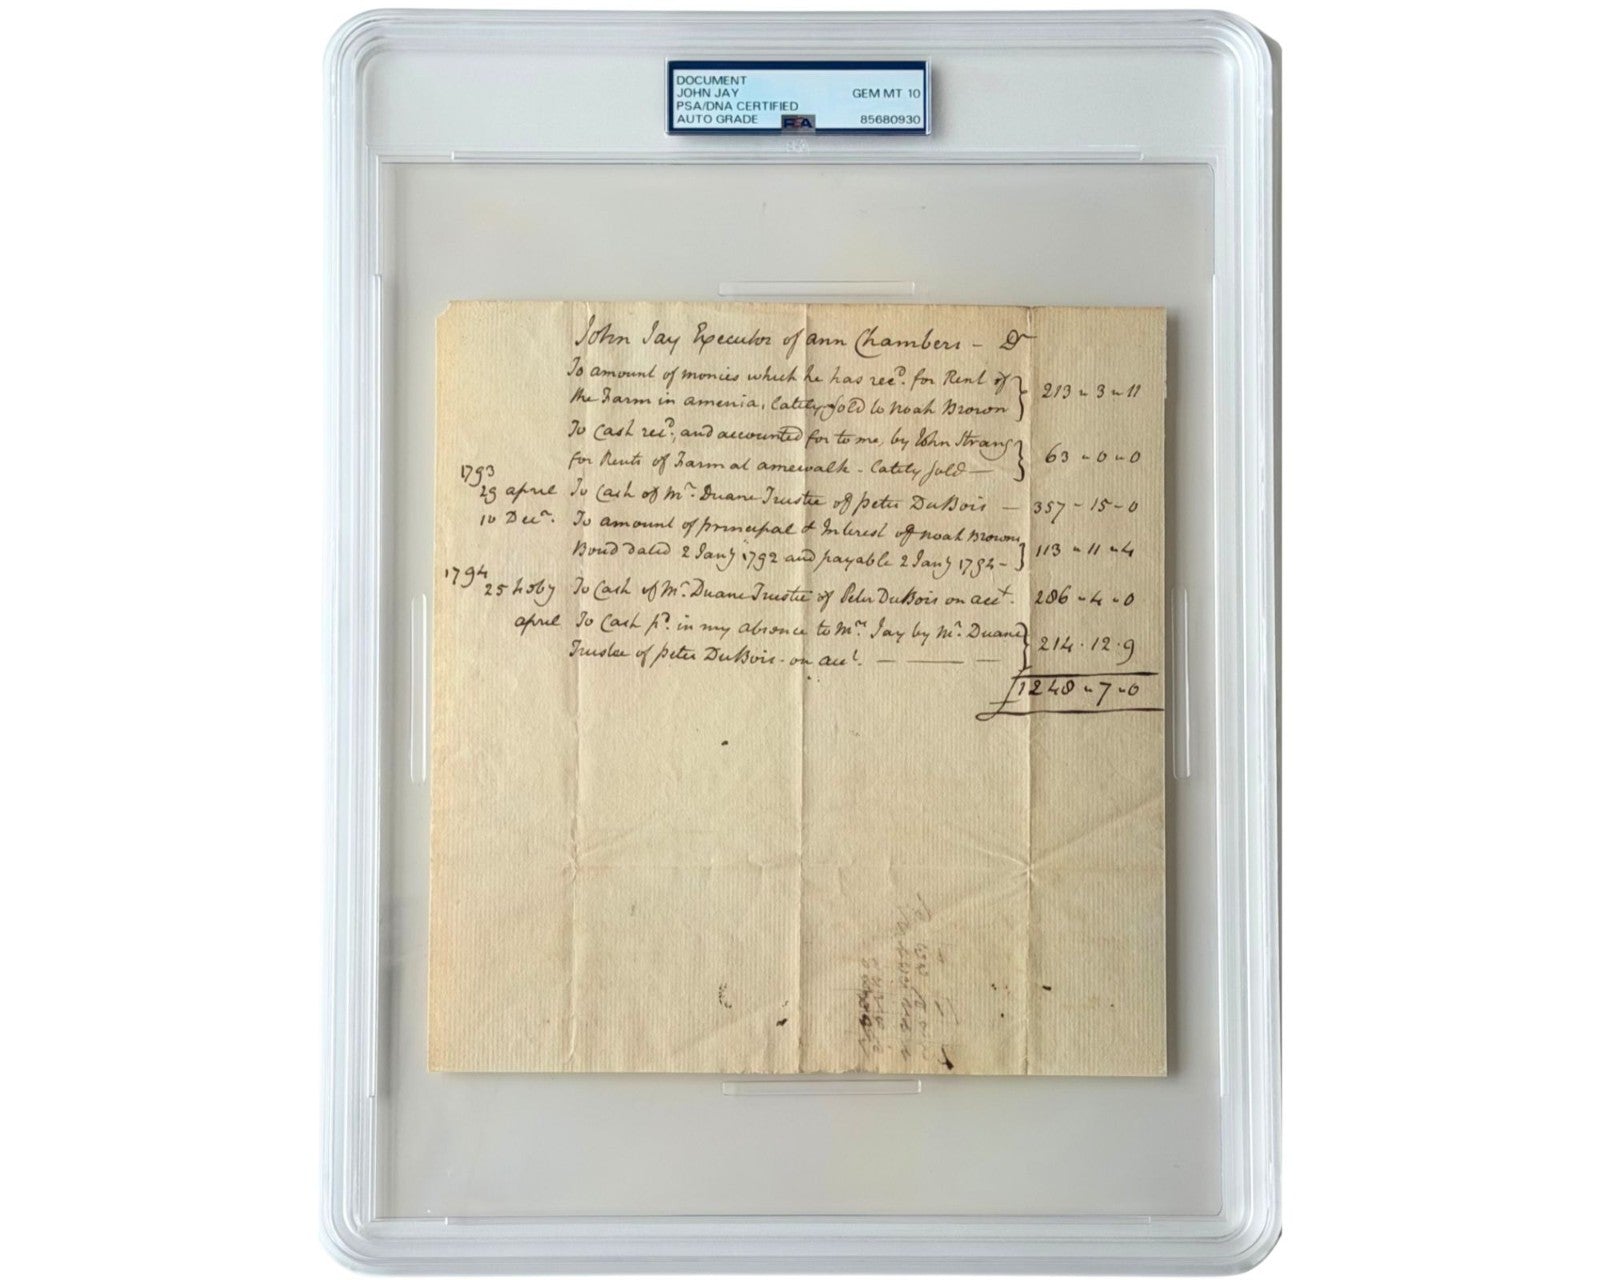 DOCUMENT
JOHN JAY GEM MT 10
PSA/DNA CERTIFIED
AUTO GRADE PSA 85680930
John Jay Executor of ann Chambers - Dr
To amount of monies which he has recd. for Rent of
the Farm in amenia, lately sold to Noah Brown } 213 " 3 " 11
To Cash recd, and accounted for to me, by John Strang
for Rents of Farm at amewalk - lately sold — } 63 " 0 " 0
1793
29 april To Cash of Mr. Duane Trustee of peter DuBois — 357 - 15 - 0
10 Decr. To amount of principal & Interest of Noah Browns
Bond dated 2 Jany 1792 and payable 2 Jany 1794 - } 113 " 11 " 4
1794
25 To Cash of Mr. Duane Trustee of Peter DuBois on acct. 286 " 4 " 0
april To Cash pd. in my absence to Mrs Jay by Mr. Duane
Trustee of peter DuBois - on acct. — — — } 214 . 12 . 9
1248 " 7 " 0